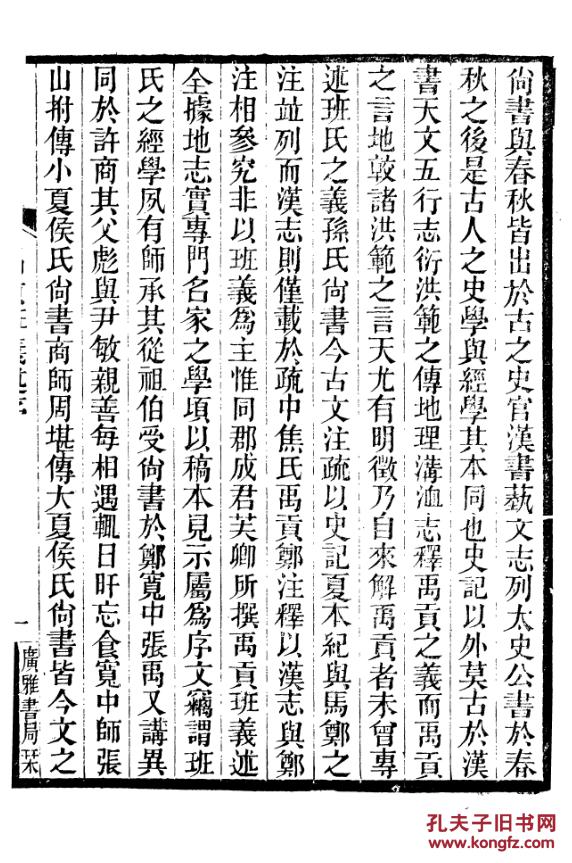 尙書與春秋皆出於古之史官漢書蓺文志列太史公書於春
秋之後是古人之史學與經學其本同也史記以外莫古於漢
書天文五行志衍洪範之傳地理溝洫志釋禹貢之義而禹貢
之言地較諸洪範之言天尤有明徵乃自來解禹貢者未曾專
述班氏之義孫氏尙書今古文注疏以史記夏本紀與馬鄭之
注竝列而漢志則僅載於疏中焦氏禹貢鄭注釋以漢志與鄭
注相參究非以班義爲主惟同郡成君芙卿所撰禹貢班義述
全據地志實專門名家之學頃以稿本見示屬爲序文竊謂班
氏之經學夙有師承其從祖伯受尙書於鄭寬中張禹又講異
同於許商其父彪與尹敏親善每相遇輒日旰忘食寬中師張
山拊傳小夏侯氏尙書商師周堪傳大夏侯氏尙書皆今文之
一
廣雅書局栞
孔夫子旧书网
www.kongfz.com